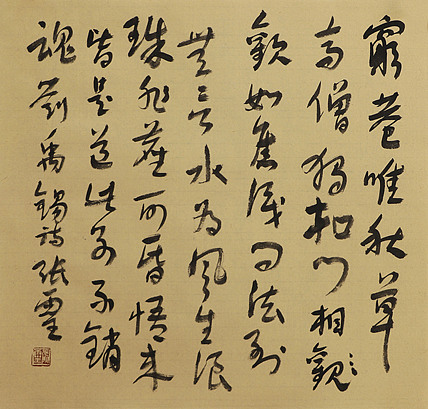 窮巷唯秋草
高僧獨扣門相觀
歡如舊識問法到
無言水為風生浪
珠非塵可昏悟來
皆是道此別不銷
魂劉禹錫詩張